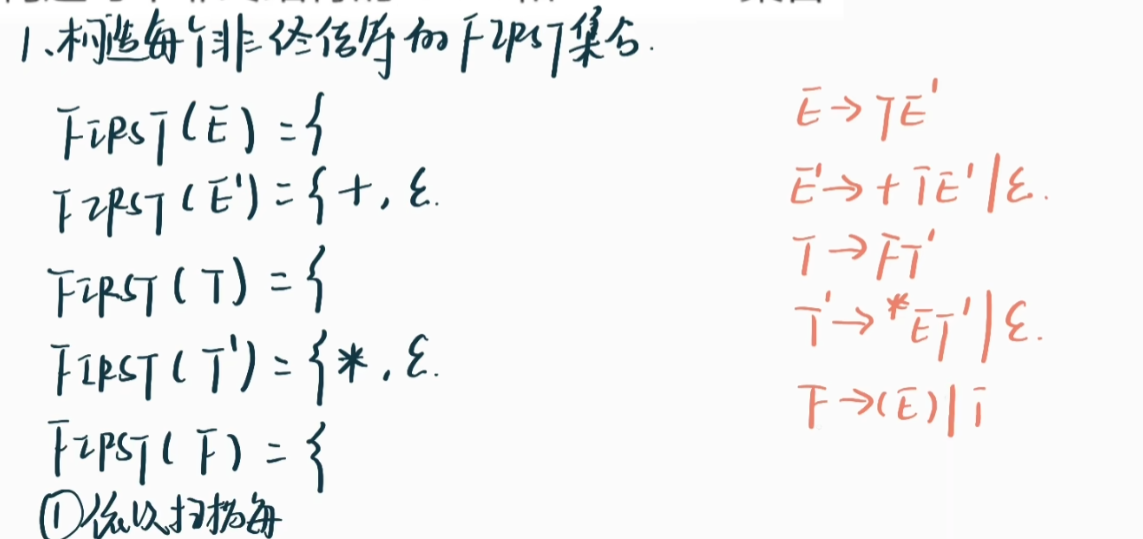 1、构造每个非终结符的FIRST集合.
FIRST(E) = {
FIRST(E') = { +, ε.
FIRST(T) = {
FIRST(T') = { *, ε.
FIRST(F) = {
①依次扫描每
E → TE'
E' → +TE' | ε.
T → FT'
T' → *ET' | ε.
F → (E) | i